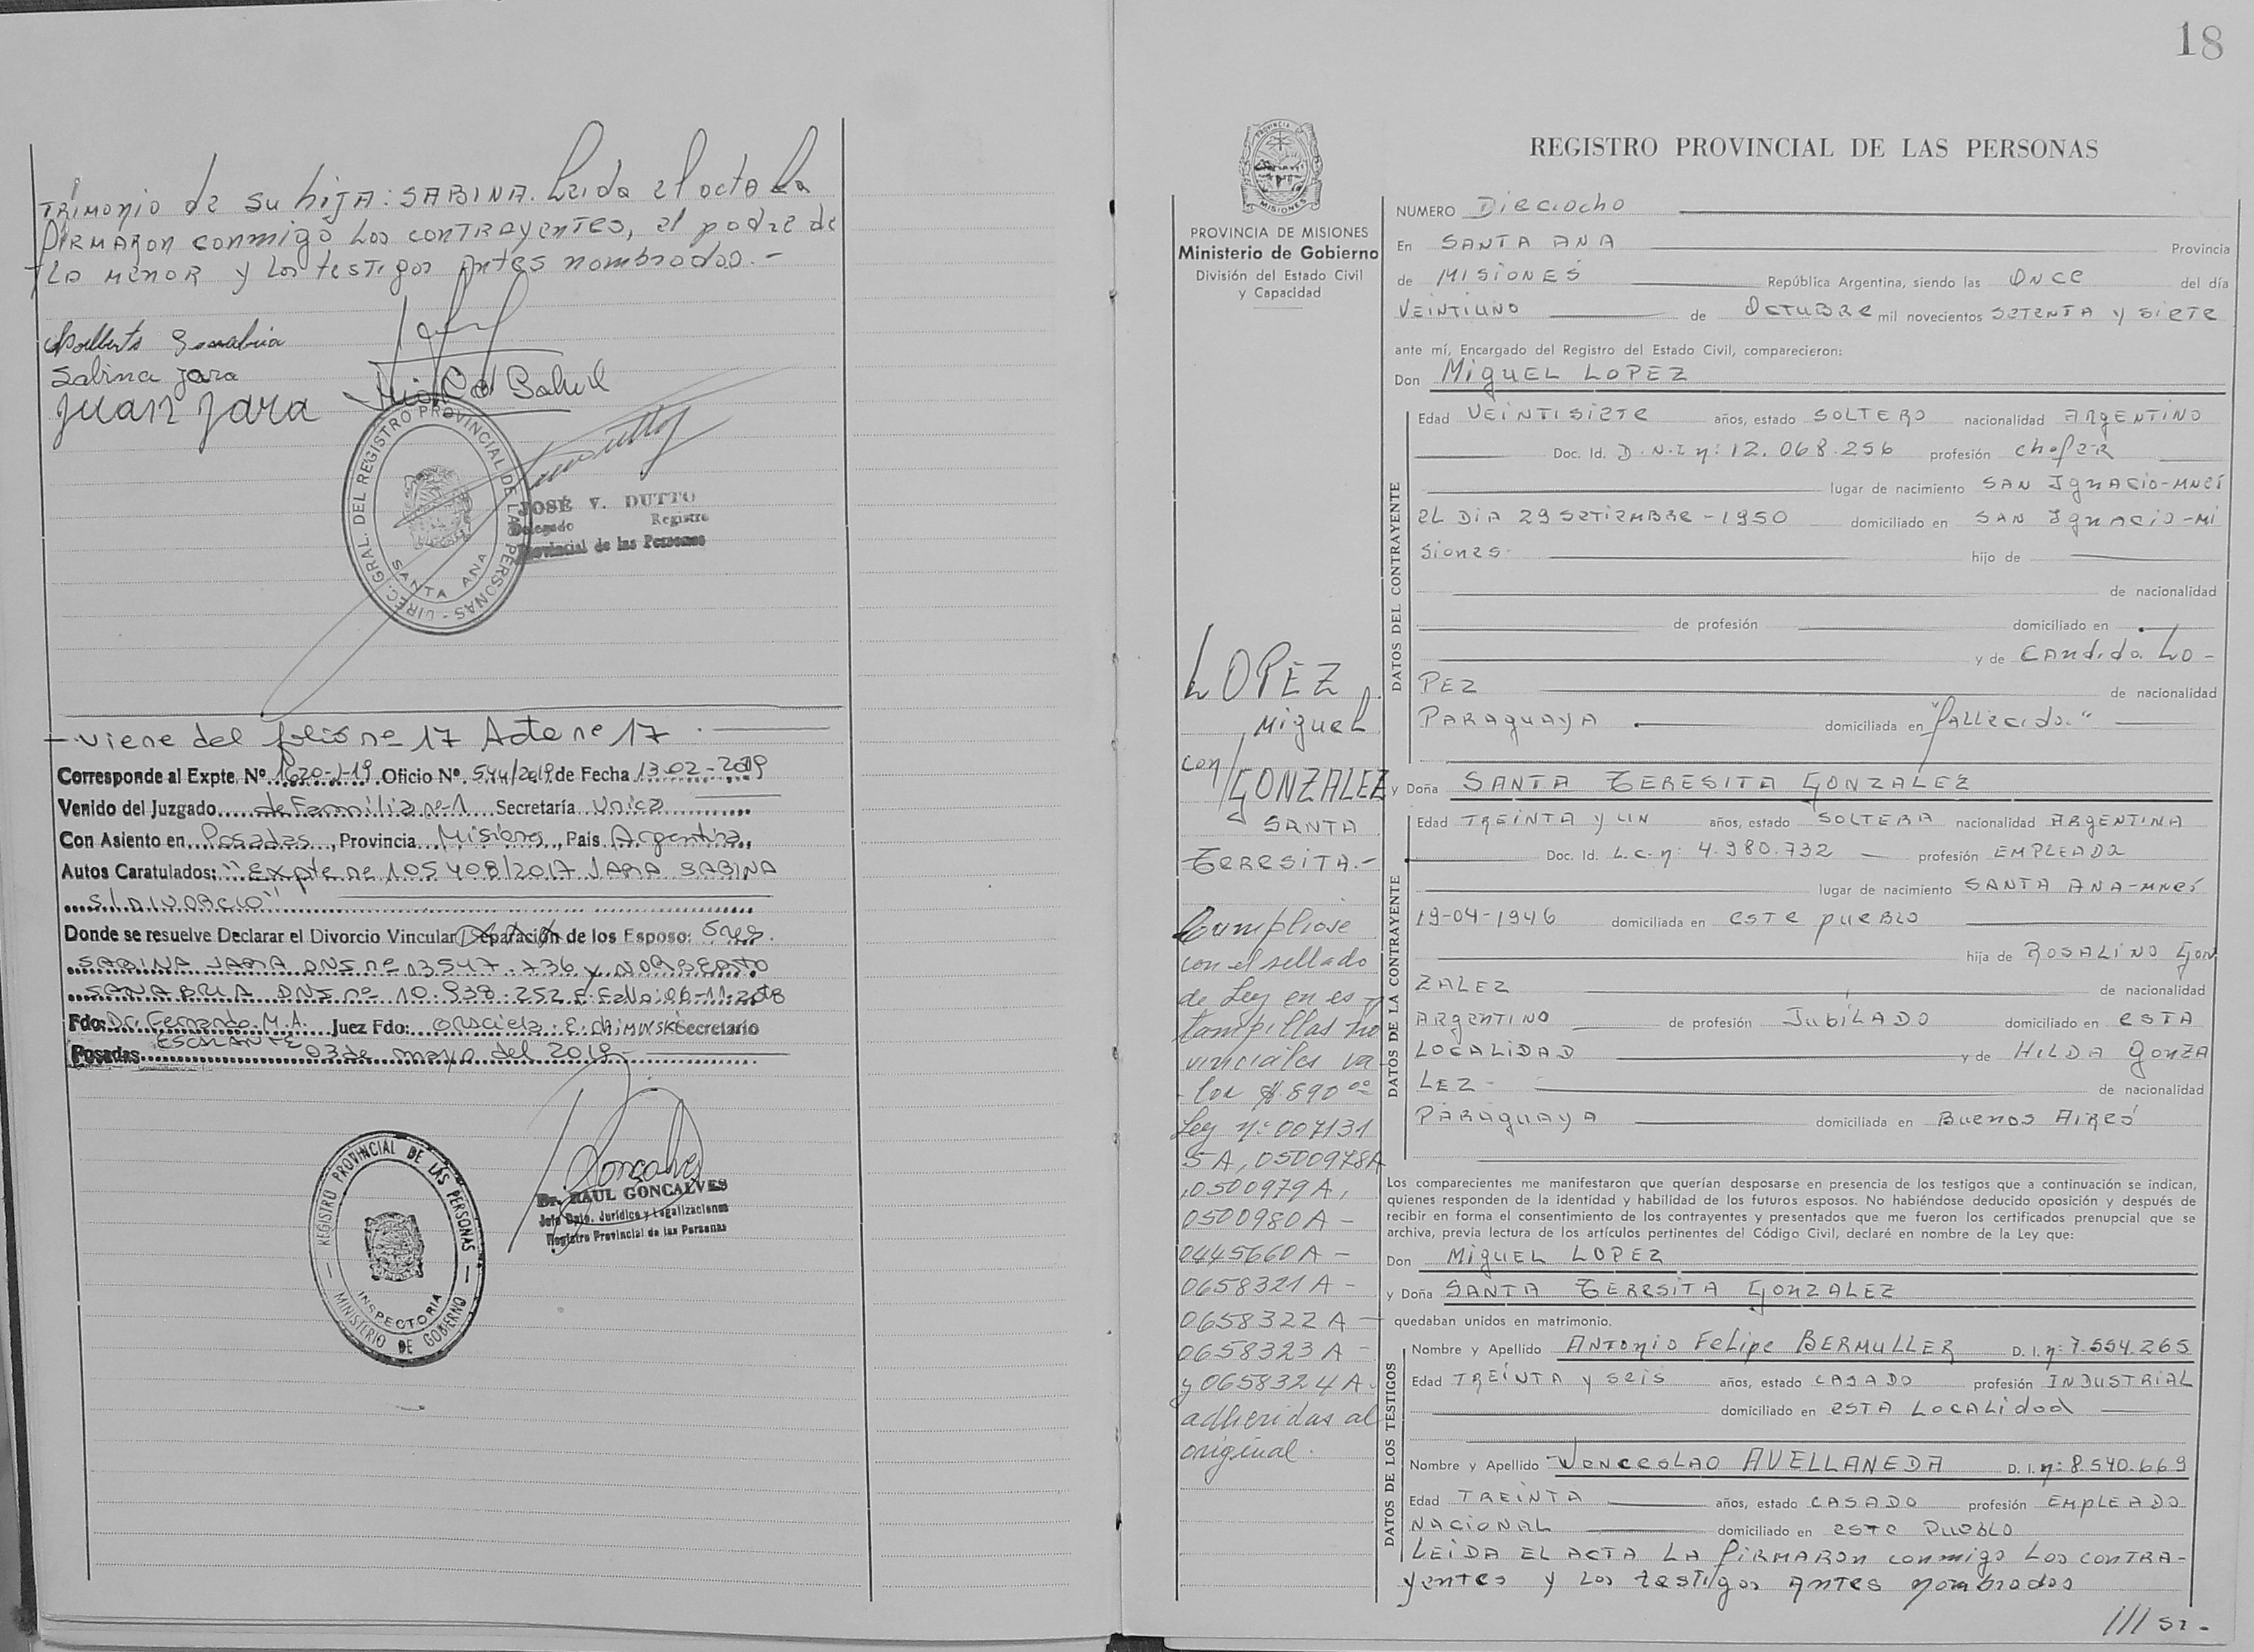 TRIMONIO de su hijA: SABINA. Leida el acta la
FIRMARON conmigo Los CONTRAYENTES, el padre de
La MENOR y Los testigos Antes nombrados.-
Sabina Jara
Juan Jara
DIREC. GRAL. DEL REGISTRO PROVINCIAL DE LAS PERSONAS -
SANTA ANA
JOSÉ V. DUTTO
Delegado Registro
Provincial de las Personas
- Viene del folio nº 17 Acta nº 17.
Corresponde al Expte. Nº 1620-J-19 Oficio Nº 544/2019 de Fecha 13-02-2019
Venido del Juzgado de Familia nº 1 Secretaría Unica
Con Asiento en Posadas, Provincia Misiones, País Argentina,
Autos Caratulados: "Expte nº 105408/2017 JARA SABINA
S/DIVORCIO"
Donde se resuelve Declarar el Divorcio Vincular Separación de los Esposo: Sres.
SABINA JARA DNI nº 13547.736 y NORBERTO
SANABRIA DNI nº 10.938.252 F. Fallo: 06-11-2018
Fdo: Dr. Fernando M.A. Juez Fdo: Graciela E. Secretario
ESCALANTE
Posadas 03 de mayo del 2019
REGISTRO PROVINCIAL DE LAS PERSONAS
INSPECTORIA
MINISTERIO DE GOBIERNO
Dr. RAUL GONCALVES
Jefe Dpto. Jurídico y Legalizaciones
Registro Provincial de las Personas
18
PROVINCIA
MISIONES
PROVINCIA DE MISIONES
Ministerio de Gobierno
División del Estado Civil
y Capacidad
LOPEZ
Miguel
con
GONZALEZ
SANTA
TERESITA.-
Cumpliose
con el sellado
de Ley en es
tampillas pro
vinciales va
lor $ 890 00
Ley nº 007131
5A, 0500978A
,0500979A,
0500980A -
0445660A -
0658321A -
0658322A -
0658323A -
y 0658324A.
adheridas al
original.
REGISTRO PROVINCIAL DE LAS PERSONAS
NUMERO Dieciocho
En SANTA ANA Provincia
de MISIONES República Argentina, siendo las ONCE del día
VEINTIUNO de OCTUBRE mil novecientos SETENTA y SIETE
ante mí, Encargado del Registro del Estado Civil, comparecieron:
Don MigUEL LOPEZ
DATOS DEL CONTRAYENTE
Edad VEINTISIETE años, estado SOLTERO nacionalidad ARGENTINO
Doc. Id. D.N.I nº: 12.068.256 profesión chofer
lugar de nacimiento SAN IGNACIO-Mnes
EL DIA 29 SETIEMBRE-1950 domiciliado en SAN IGNACIO-Mi
Siones. hijo de
de nacionalidad
de profesión domiciliado en
y de CANdida Lo-
PEZ de nacionalidad
PARAGUAYA domiciliada en "fallecida"
y Doña SANTA TERESITA GONZALEZ
DATOS DE LA CONTRAYENTE
Edad TREINTA y UN años, estado SOLTERA nacionalidad ARGENTINA
Doc. Id. L.C. nº 4.980.732 profesión EMPLEADA
lugar de nacimiento SANTA ANA-Mnes
19-04-1946 domiciliada en este pueblo
hija de ROSALINO Gon
ZALEZ de nacionalidad
ARGENTINO de profesión JUBILADO domiciliado en ESTA
LOCALIDAD y de HILDA GONZA
LEZ- de nacionalidad
PARAGUAYA domiciliada en BUENOS AIRES
Los comparecientes me manifestaron que querían desposarse en presencia de los testigos que a continuación se indican,
quienes responden de la identidad y habilidad de los futuros esposos. No habiéndose deducido oposición y después de
recibir en forma el consentimiento de los contrayentes y presentados que me fueron los certificados prenupcial que se
archiva, previa lectura de los artículos pertinentes del Código Civil, declaré en nombre de la Ley que:
Don MigUEL LOPEZ
y Doña SANTA TERESITA GONZALEZ
quedaban unidos en matrimonio.
DATOS DE LOS TESTIGOS
Nombre y Apellido ANTONIO FELIPE BERMULLER D. I. nº: 7.554.265
Edad TREINTA y SEIS años, estado CASADO profesión INDUSTRIAL
domiciliado en ESTA LOCALIDAD
Nombre y Apellido WENCESLAO AVELLANEDA D. I. nº: 8.540.669
Edad TREINTA años, estado CASADO profesión EMPLEADO
NACIONAL domiciliado en este Pueblo
LEIDA EL ACTA LA FIRMARON conmigo Los CONTRA-
yentes y Los testigos Antes nombrados